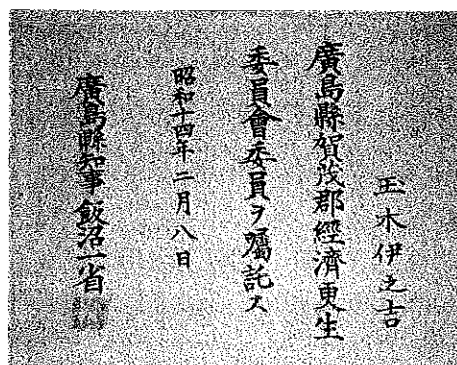 玉木伊之吉
廣島縣賀茂郡經濟更生
委員會委員ヲ囑託ス
昭和十四年二月八日
廣島縣知事飯沼一省